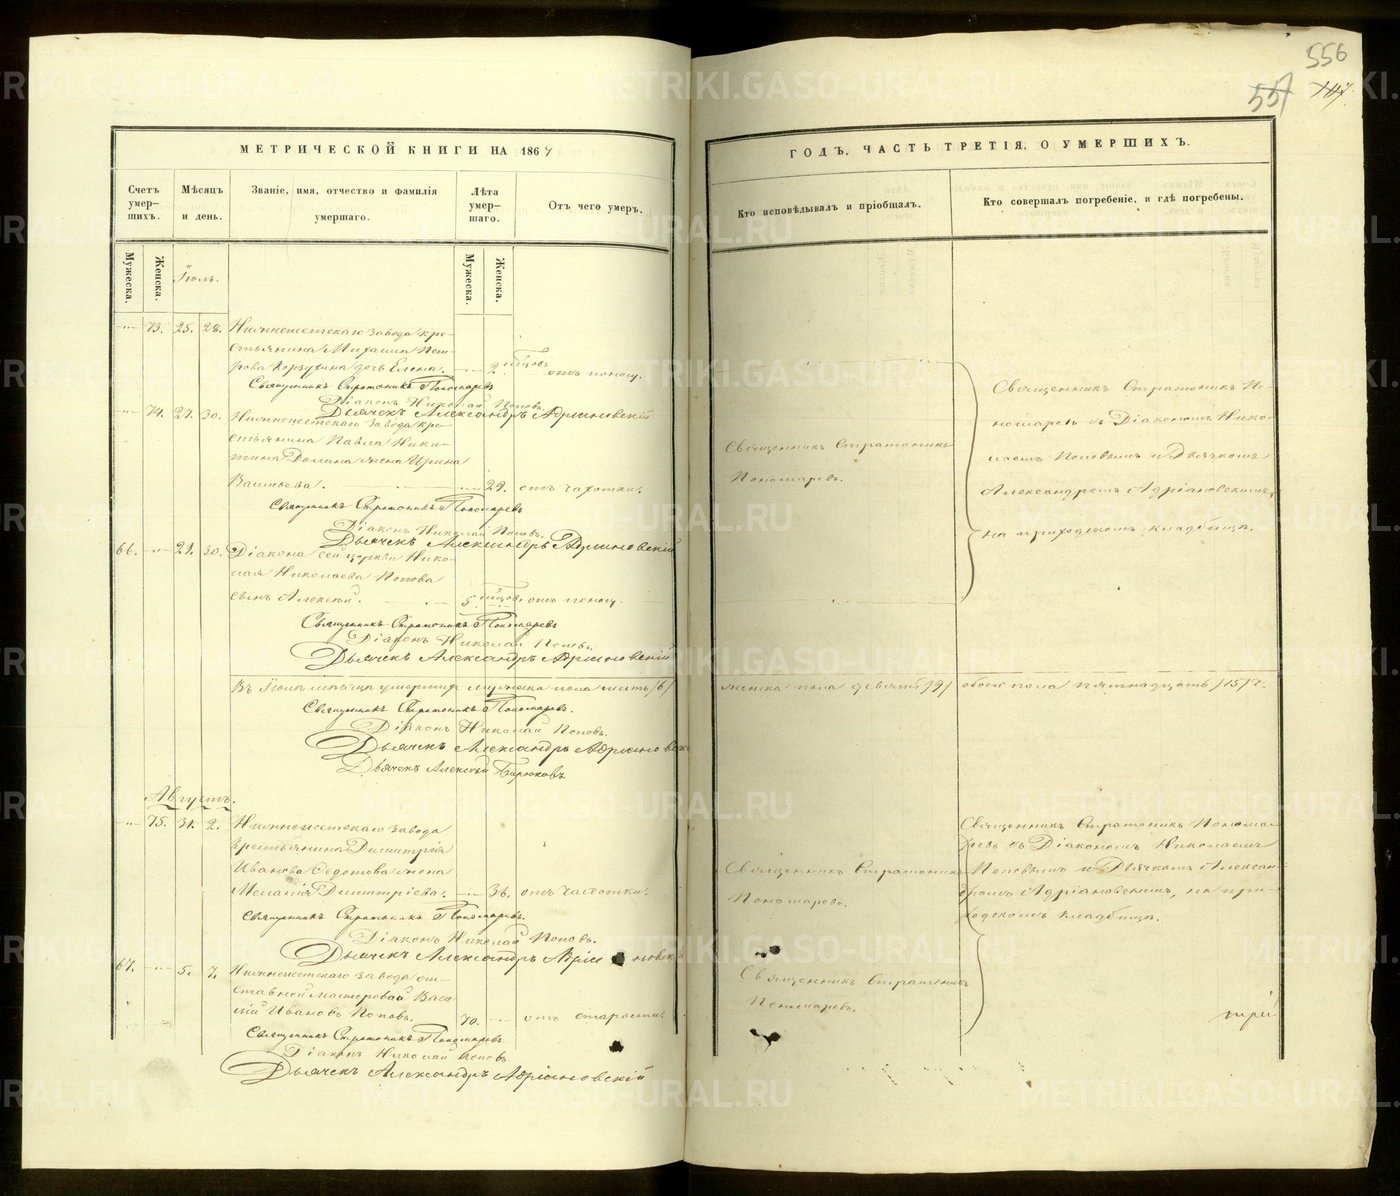 556
557
МЕТРИЧЕСКОЙ КНИГИ НА 1867
Счетъ умер-шихъ.
Мѣсяцъ и день.
Званіе, имя, отчество и фамилія умершаго.
Лѣта умер-шаго.
Отъ чего умеръ.
Мужеска.
Женска.
Іюль.
Мужеска.
Женска.
73. 25. 28.
стьянина Михаила Пет-
рова дочь Елена. 2. отъ поносу.
Священникъ Стратоникъ Пономаревъ
Діаконъ Николай Поповъ.
Дьячекъ Александръ Адріановскій
74. 27. 30.
завода кре-
стьянина Павла Ники-
тина жена Ирина
Васильева. 29. отъ чахотки.
Священникъ Стратоникъ Пономаревъ
Діаконъ Николай Поповъ.
Дьячекъ Александръ Адріановскій
66. 29. 30. Діакона сей церкви Нико-
лая Николаева Попова
сынъ Алексѣй. 5. отъ поносу.
Священникъ Стратоникъ Пономаревъ
Діаконъ Николай Поповъ.
Дьячекъ Александръ Адріановскій
Въ Іюлѣ мѣсяцѣ умершихъ мужеска пола шесть /6/
Священникъ Стратоникъ Пономаревъ.
Діаконъ Николай Поповъ.
Дьячекъ Александръ Адріановскій
Дьячекъ Алексѣй Бирюковъ.
Августъ.
75. 31. 2.
завода
крестьянина Димитрія
Иванова Федотова жена
Меланія Димитріева. 36. отъ чахотки.
Священникъ Стратоникъ Пономаревъ.
Діаконъ Николай Поповъ.
Дьячекъ Александръ Адріановскій
67. 5. 7.
завода от-
ставной мастеровой Васи-
лій Ивановъ Поповъ. 70. отъ старости.
Священникъ Стратоникъ Пономаревъ.
Діаконъ Николай Поповъ.
Дьячекъ Александръ Адріановскій
ГОДЪ, ЧАСТЬ ТРЕТІЯ, О УМЕРШИХЪ.
Кто исповѣдывалъ и пріобщалъ.
Кто совершалъ погребеніе, и гдѣ погребены.
Священникъ Стратоникъ
Пономаревъ.
Священникъ Стратоникъ По-
номаревъ съ Діакономъ Нико-
лаемъ Поповымъ и Дьячкомъ
Александромъ Адріановскимъ,
на приходскомъ кладбищѣ.
женска пола девять /9/ обоего пола пятнадцать /15/ ч.
Священникъ Стратоникъ
Пономаревъ.
Священникъ Стратоникъ Понома-
ревъ съ Діакономъ Николаемъ
Поповымъ и Дьячкомъ Алексан-
дромъ Адріановскимъ, на при-
ходскомъ кладбищѣ.
Священникъ Стратоникъ
Пономаревъ.
METRIKI.GASO-URAL.RU